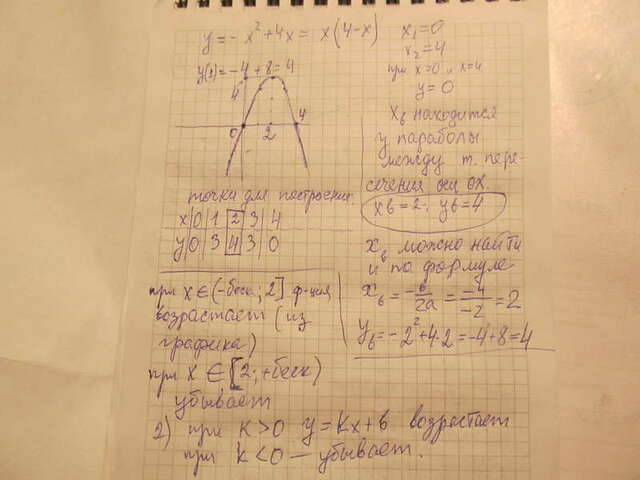 y = - x² + 4x = x(4 - x)
x₁ = 0
x₂ = 4
при x = 0 и x = 4
y = 0
y(2) = -4 + 8 = 4
4
0 2 4
xв находится
у параболы
между т. пере-
сечения оси ox.
xв = 2; yв = 4
точки для построения:
x|0|1|2|3|4
y|0|3|4|3|0
xв можно найти
и по формуле
xв = -в/2a = -4/-2 = 2
yв = - 2² + 4·2 = -4 + 8 = 4
при x ∈ (-беск; 2] ф-ция
возрастает (из
графика)
при x ∈ [2; +беск)
убывает
2) при k > 0 y = kx + в возрастает
при k < 0 — убывает.